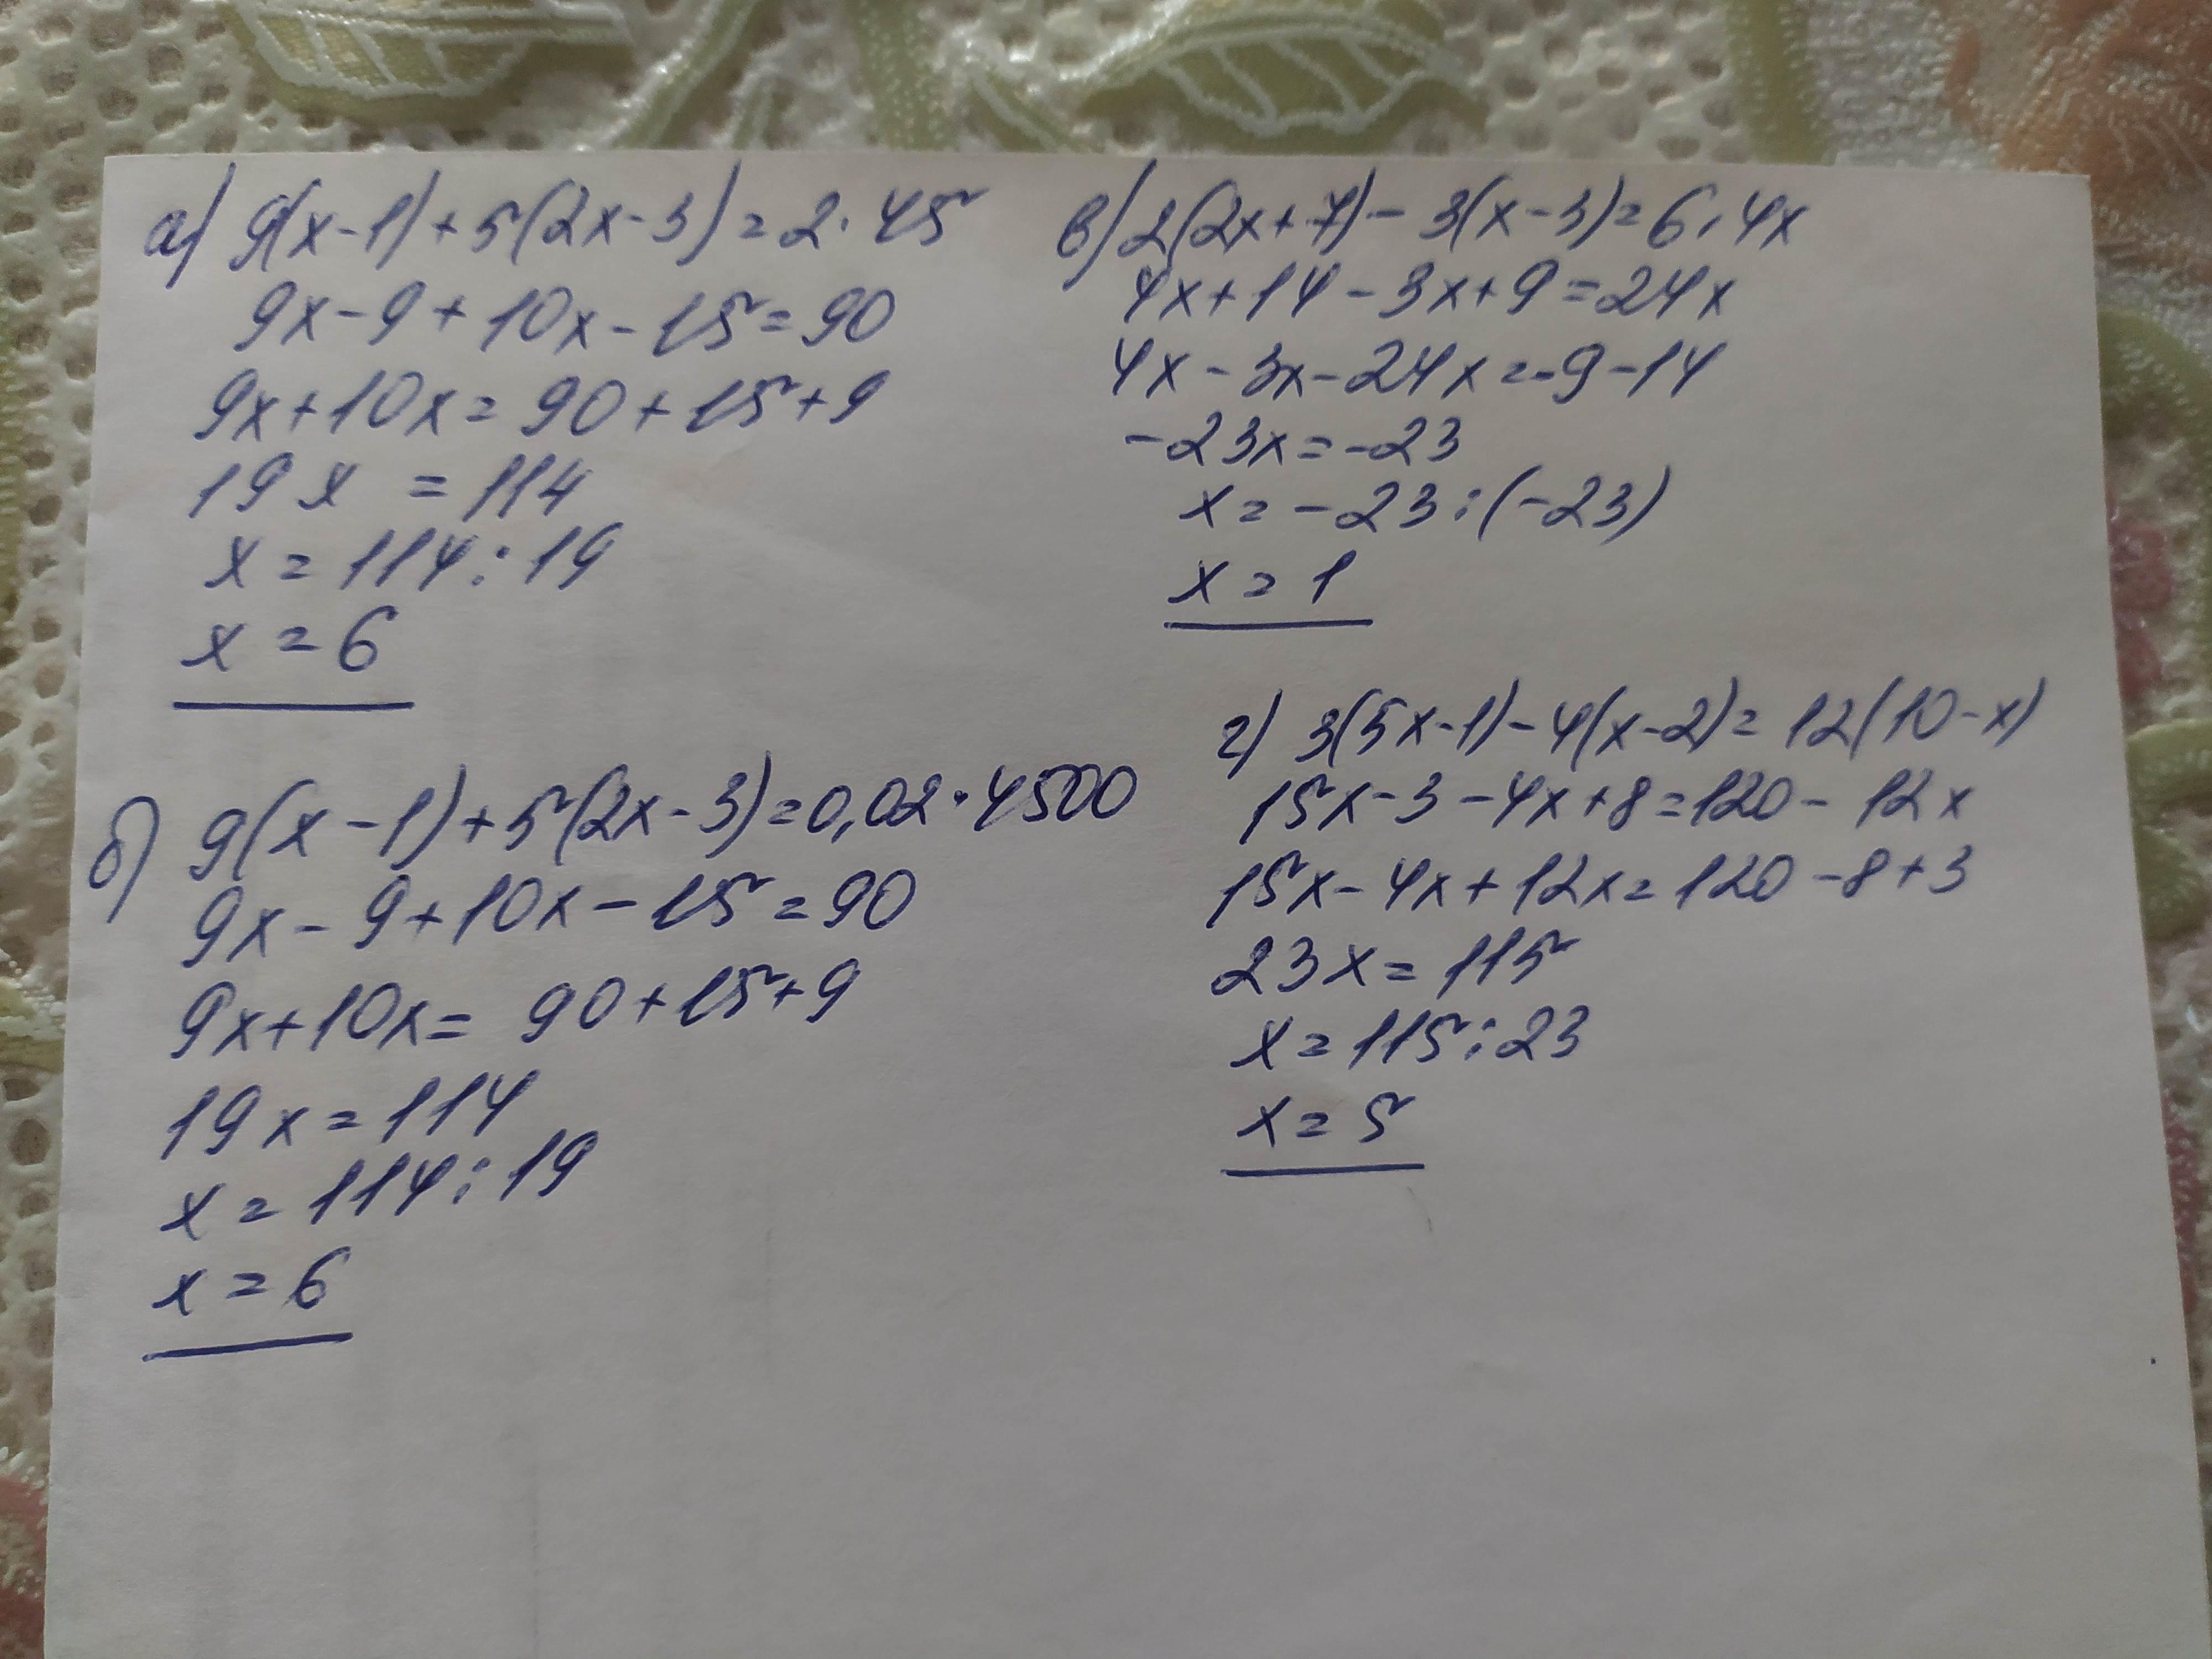 а) 9(x-1)+5(2x-3)=2·45
9x-9+10x-15=90
9x+10x=90+15+9
19x=114
x=114:19
x=6
б) 9(x-1)+5(2x-3)=0,02·4500
9x-9+10x-15=90
9x+10x=90+15+9
19x=114
x=114:19
x=6
в) 2(2x+7)-3(x-3)=6·4x
4x+14-3x+9=24x
4x-3x-24x=-9-14
-23x=-23
x=-23:(-23)
x=1
г) 3(5x-1)-4(x-2)=12(10-x)
15x-3-4x+8=120-12x
15x-4x+12x=120-8+3
23x=115
x=115:23
x=5